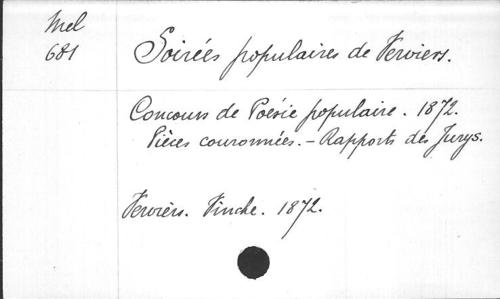 Mel
681
Soirées populaires de Verviers.
Concours de Poésie populaire. 1872.
Pièces couronnées. – Rapports des Jurys.
Verviers. Vinche. 1872.